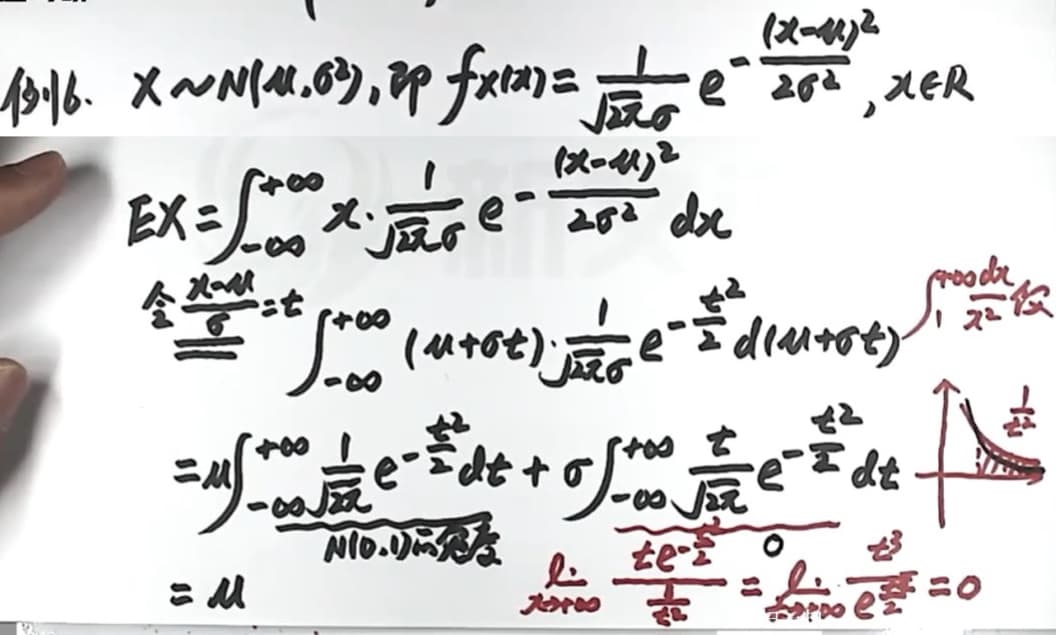 例16. X~N(μ,σ²),即 fX(x)= 1/(√2π σ) e^{-(x-μ)²/(2σ²)}, x∈R
EX=∫_{-∞}^{+∞} x·1/(√2π σ) e^{-(x-μ)²/(2σ²)} dx
令 (x-μ)/σ =t ∫_{-∞}^{+∞} (μ+σt)·1/(√2π σ) e^{-t²/2} d(μ+σt)
∫_1^{+∞} dx/x² 收
=μ∫_{-∞}^{+∞} 1/√2π e^{-t²/2} dt + σ∫_{-∞}^{+∞} t/√2π e^{-t²/2} dt
1/t²
N(0,1)的密度
0
=μ
lim_{x→+∞} te^{-t²/2}/(1/t²) = lim_{t→+∞} t³/e^{t²/2} =0